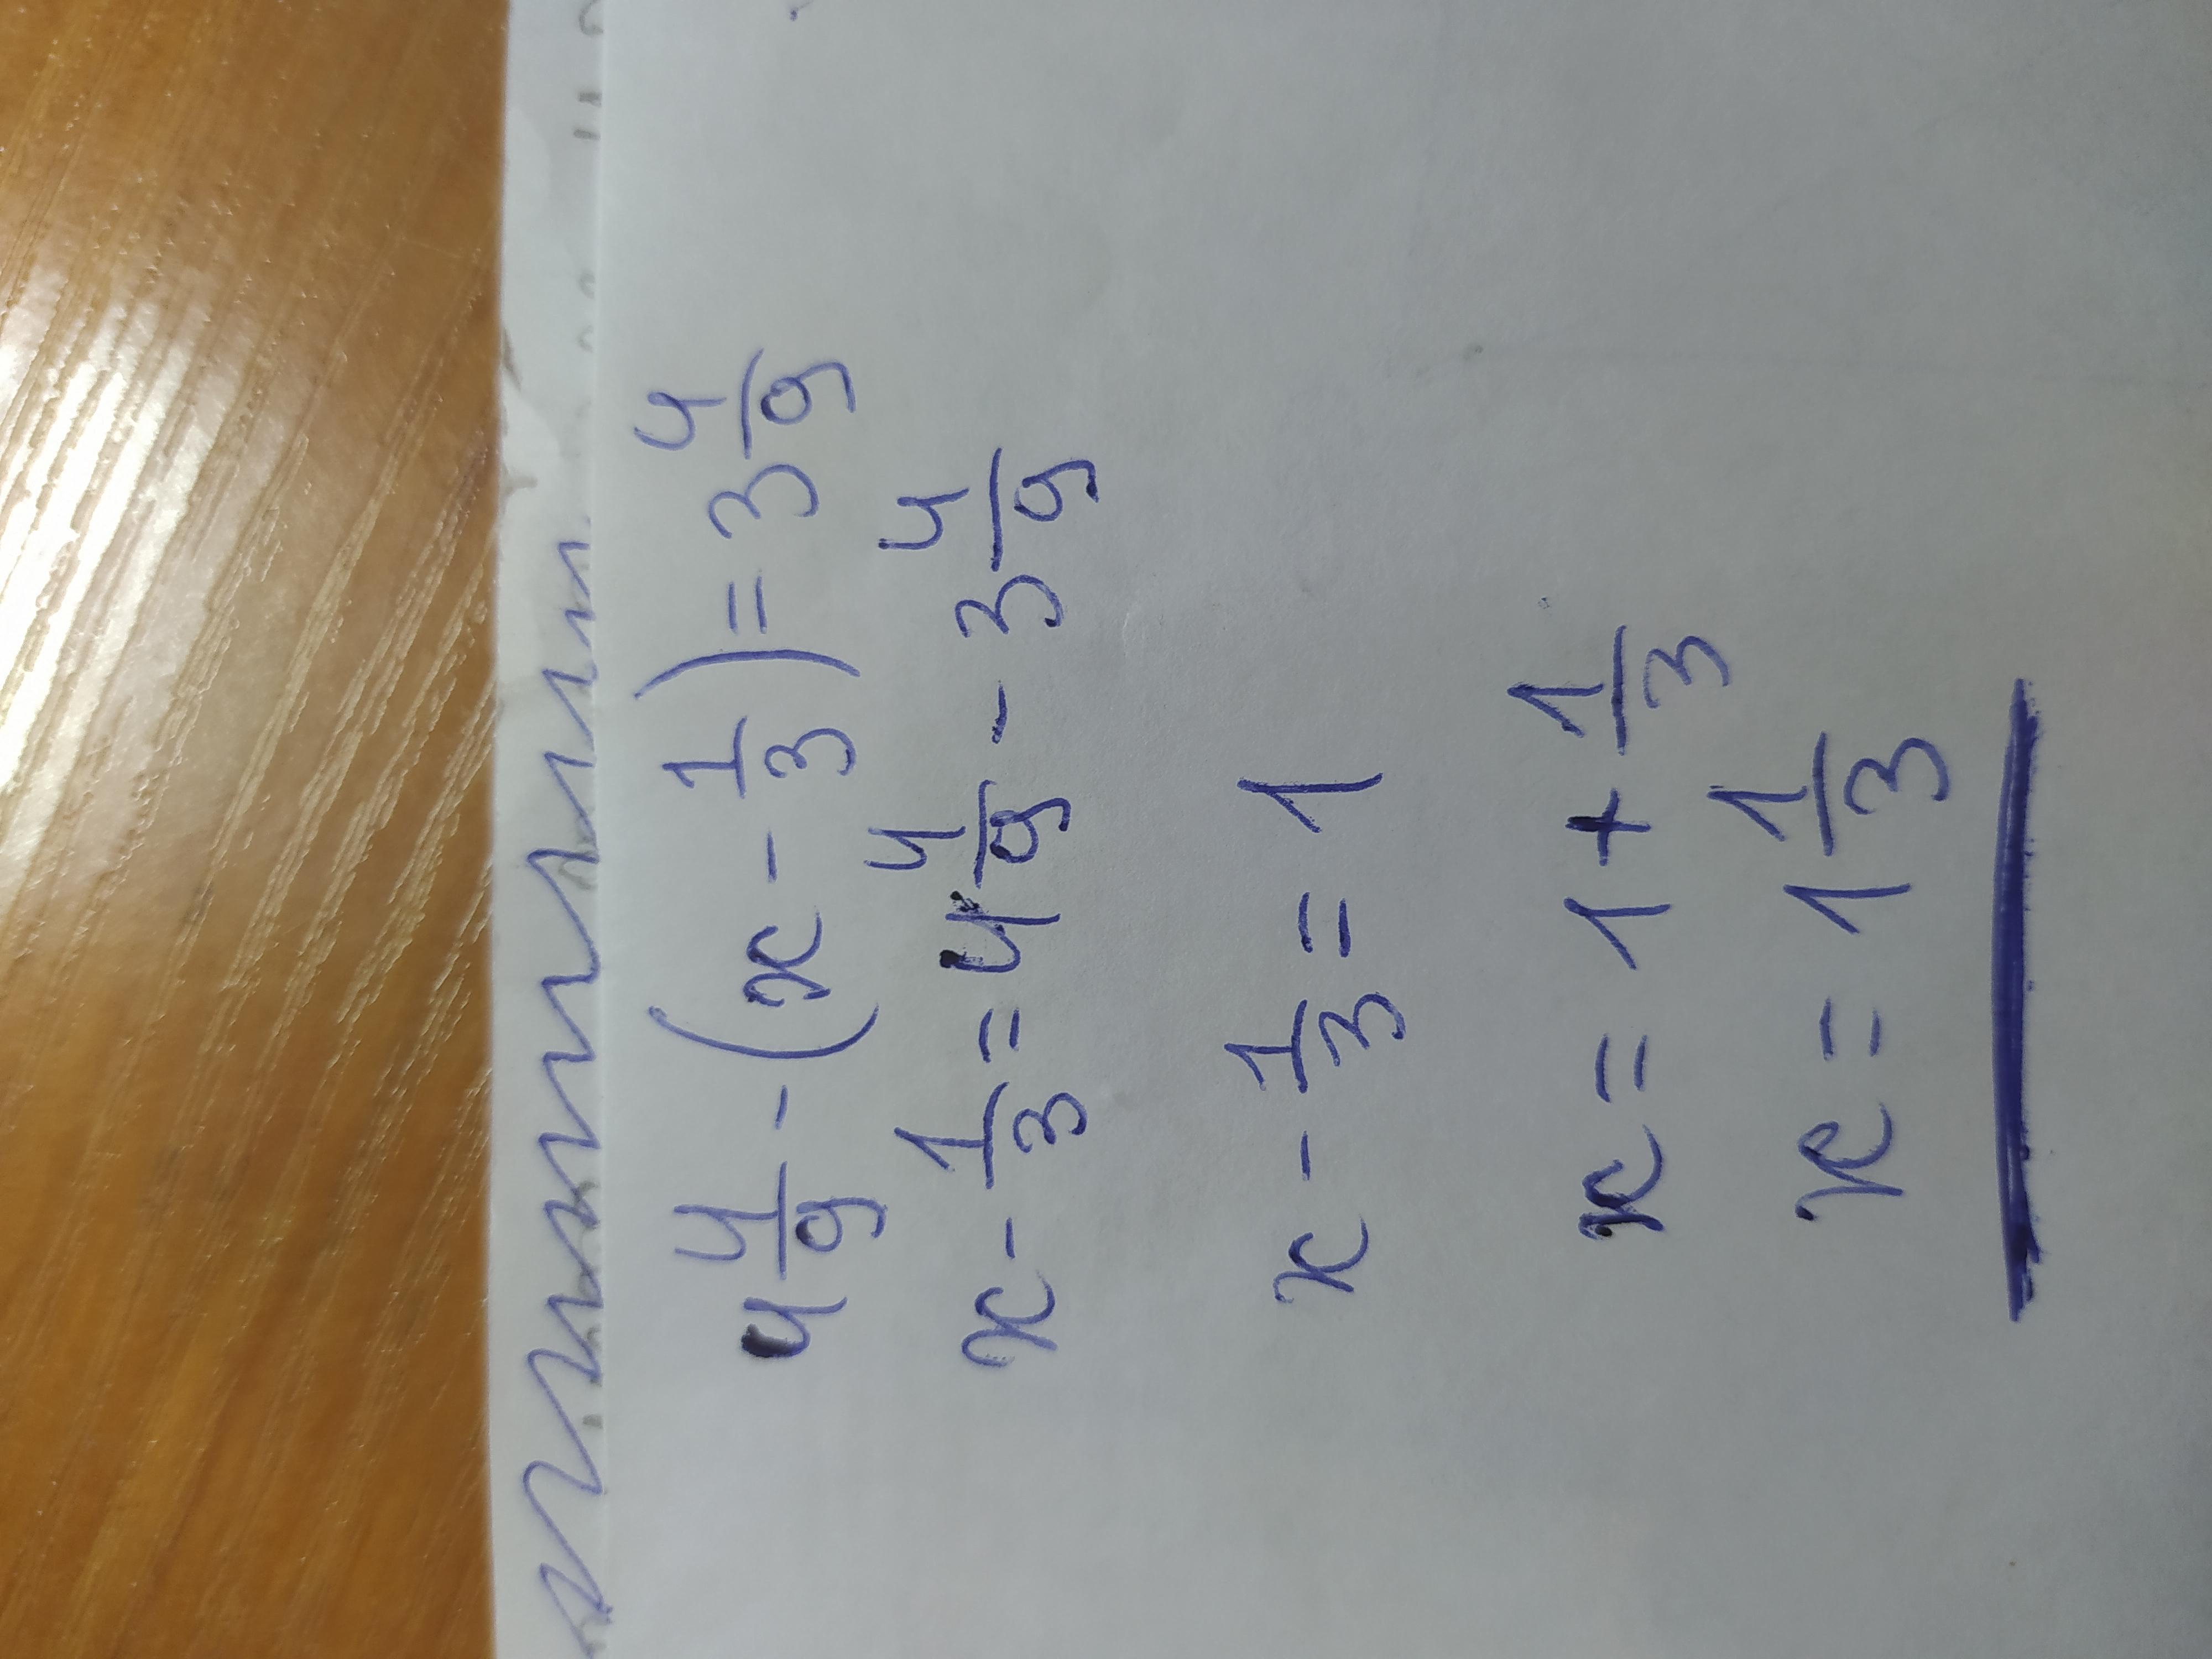 4 4/9 - (x - 1/3) = 3 4/9
x - 1/3 = 4 4/9 - 3 4/9
x - 1/3 = 1
x = 1 + 1/3
x = 1 1/3